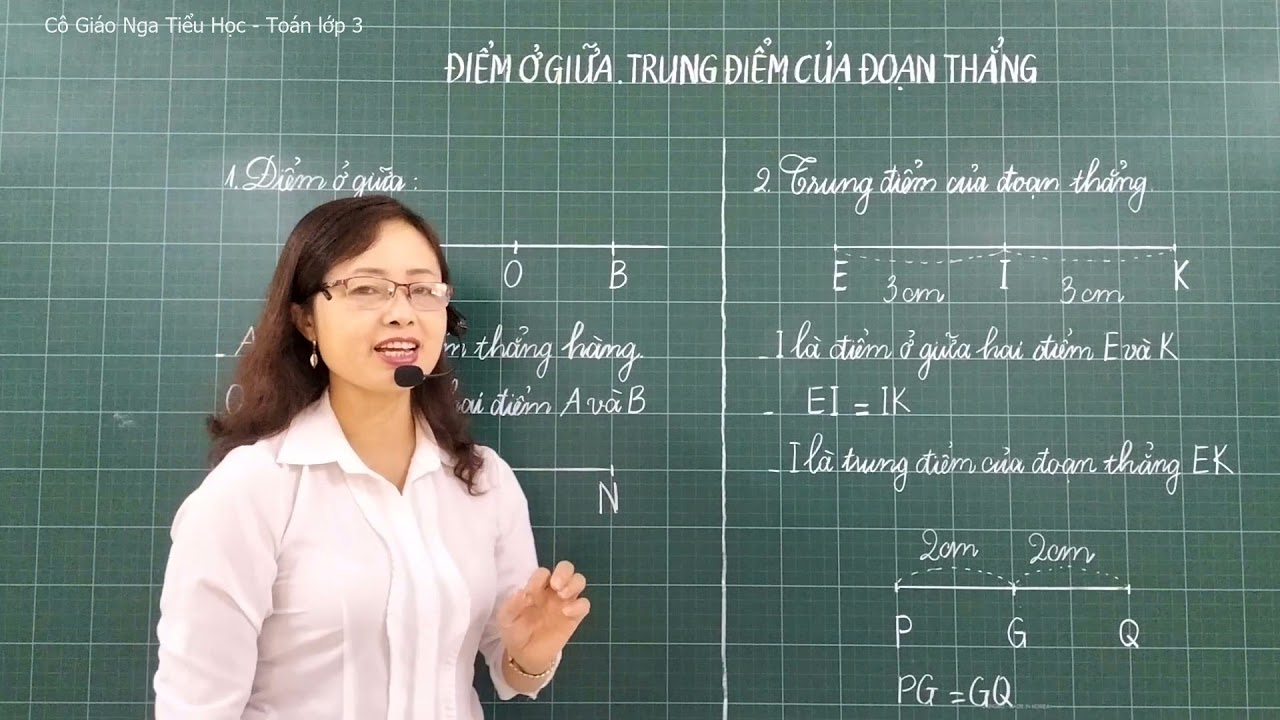 Cô Giáo Nga Tiểu Học - Toán lớp 3
ĐIỂM Ở GIỮA. TRUNG ĐIỂM CỦA ĐOẠN THẲNG
1. Điểm ở giữa:
O B
A thẳng hàng.
hai điểm A và B
N
2. Trung điểm của đoạn thẳng.
E I K
3cm 3cm
- I là điểm ở giữa hai điểm E và K
- EI = IK
- I là trung điểm của đoạn thẳng EK
2cm 2cm
P G Q
PG = GQ